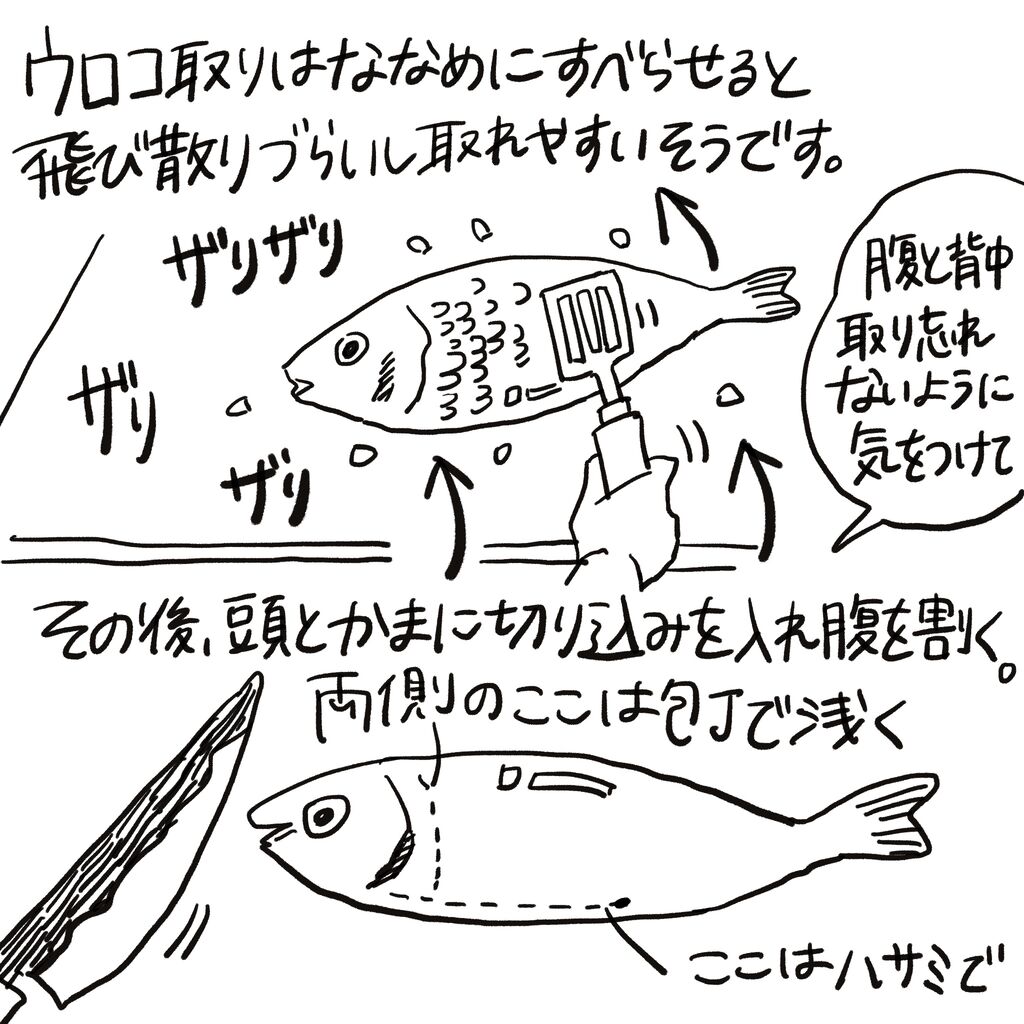 ウロコ取りはななめにすべらせると
飛び散りづらいし取れやすいそうです。
ザリザリ
ザリ
ザリ
腹と背中
取り忘れ
ないように
気をつけて
その後、頭とかまに切り込みを入れ腹を割く。
両側のここは包丁で浅く
ここはハサミで